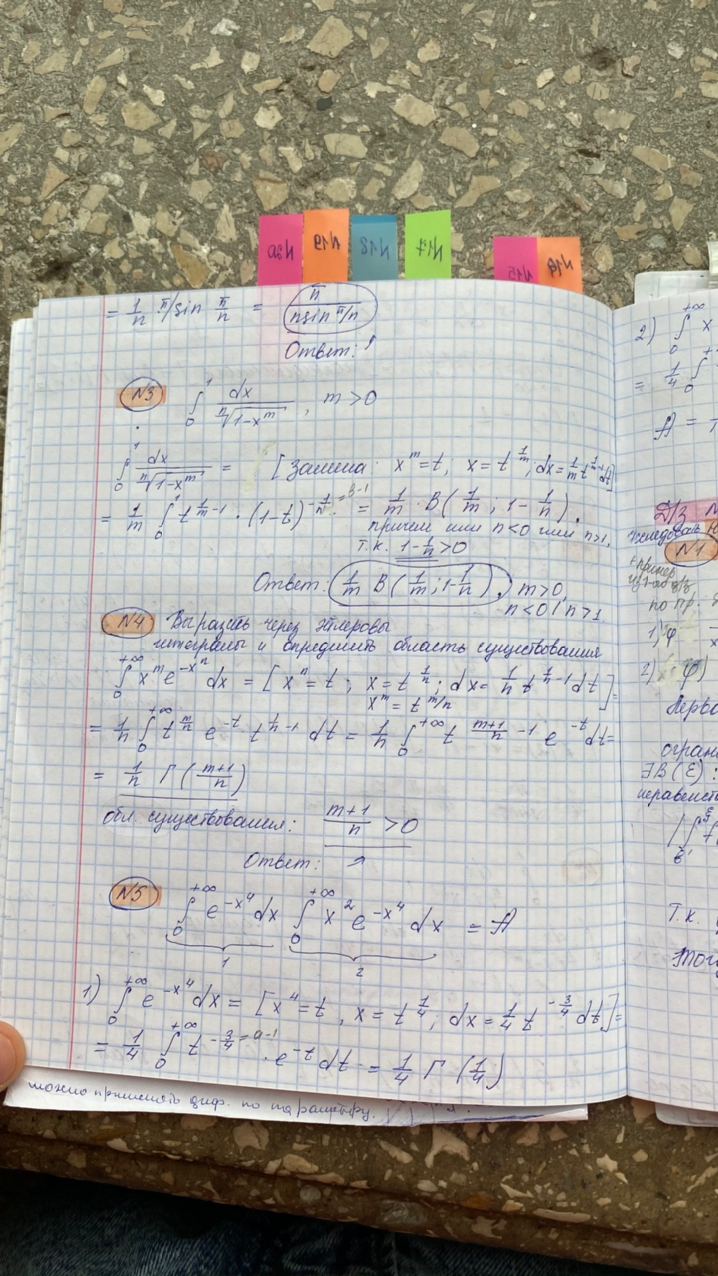 N20 N19 N18 N17 N15 N16
= 1/n · π/sin π/n = π/(n sin π/n)
Ответ: ↑
N3 ∫₀¹ dx/ⁿ√(1-xᵐ), m>0
∫₀¹ dx/ⁿ√(1-xᵐ) = [Замена: xᵐ=t, x=t^(1/m); dx=1/m t^(1/m-1)dt]
= 1/m ∫₀¹ t^(1/m-1) · (1-t)^(-1/n = b-1) = 1/m · B(1/m; 1-1/n),
причем или n<0 или n>1,
т.к. 1-1/n>0
Ответ: 1/m B(1/m; 1-1/n), m>0,
n<0, n>1
N4 Выразить через эйлеровы
интегралы и определить область существования
∫₀^(+∞) xᵐe^(-xⁿ) dx = [xⁿ=t; x=t^(1/n); dx=1/n t^(1/n-1)dt]=
xᵐ=t^(m/n)
= 1/n ∫₀^(+∞) t^(m/n) e^(-t) t^(1/n-1) dt = 1/n ∫₀^(+∞) t^((m+1)/n -1) e^(-t)dt=
= 1/n Г((m+1)/n)
обл. существования: (m+1)/n >0
Ответ: ↗
N5 ∫₀^(+∞) e^(-x⁴)dx ∫₀^(+∞) x²e^(-x⁴)dx = A
1 2
1) ∫₀^(+∞) e^(-x⁴)dx = [x⁴=t, x=t^(1/4); dx=1/4 t^(-3/4)dt]=
= 1/4 ∫₀^(+∞) t^(-3/4 = a-1) · e^(-t)dt = 1/4 Г(1/4)
можно применять диф. по параметру.
2) ∫₀^(+∞) x
= 1/4 ∫₀
A =
Д/З N
N1
по пр.
1) φ
2) φ)
Перво
огран
∃B(ε):
неравенст
т.к.
Тог